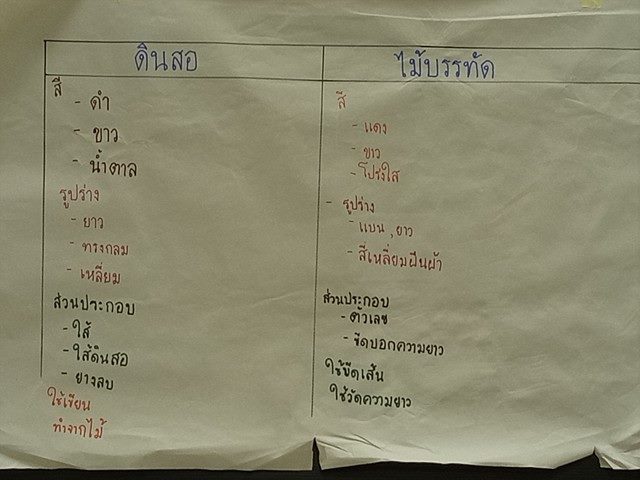 ดินสอ
สี
- ดำ
- ขาว
- น้ำตาล
รูปร่าง
- ยาว
- ทรงกลม
- เหลี่ยม
ส่วนประกอบ
- ไส้
- ไส้ดินสอ
- ยางลบ
ใช้เขียน
ทำจากไม้
ไม้บรรทัด
สี
- แดง
- ขาว
- โปร่งใส
- รูปร่าง
- แบน , ยาว
- สี่เหลี่ยมผืนผ้า
ส่วนประกอบ
- ตัวเลข
- ขีดบอกความยาว
ใช้ขีดเส้น
ใช้วัดความยาว